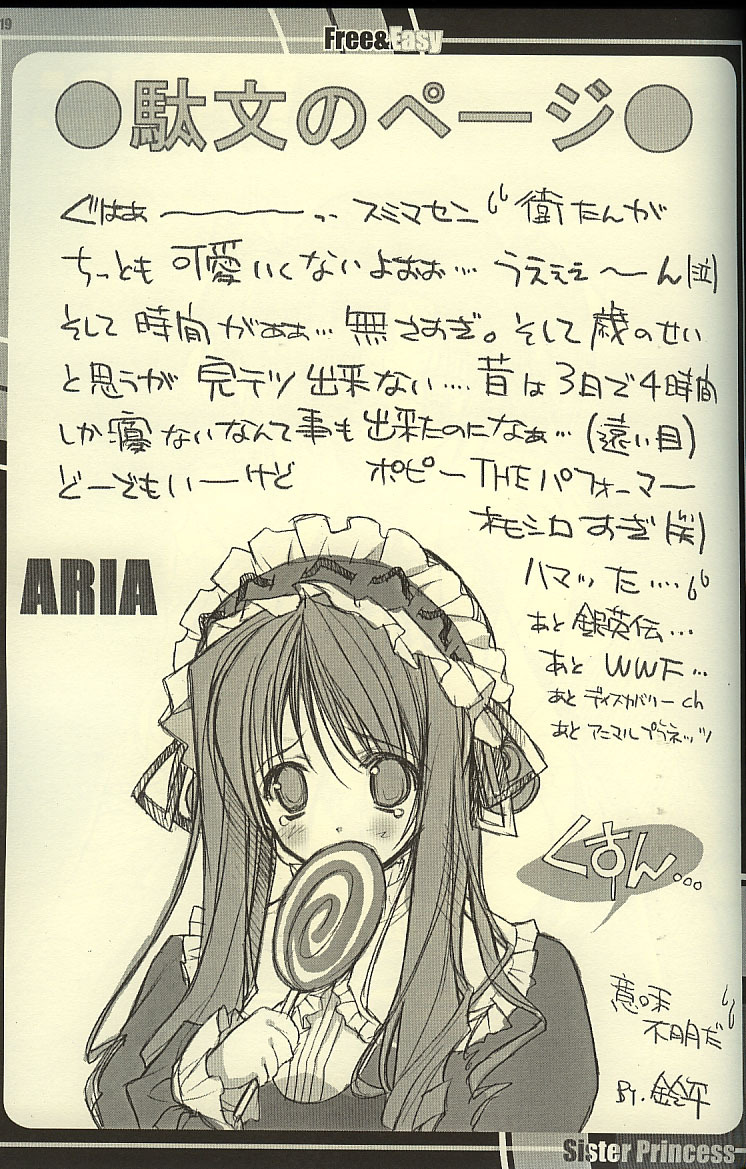 19
Free&Easy
●駄文のページ●
ぐはぁ〜〜っ スミマセン 衛たんが
ちっとも可愛いくないよぉぉ… うえぇぇ〜ん(泣)
そして時間がぁぁ… 無さすぎ。そして歳のせい
と思うが 完テツ出来ない…. 昔は3日で4時間
しか寝ないなんて事も出来たのになぁ…(遠い目)
どーでもいーけど ポピーTHEパフォーマー
オモシロすぎ(笑)
ハマッた….
あと銀英伝…
あと WWF…
あと ディスカバリーch
あと アニマルプラネッツ
ARIA
くすん…
意味
不明だ
By.鈴平
Sister Princess